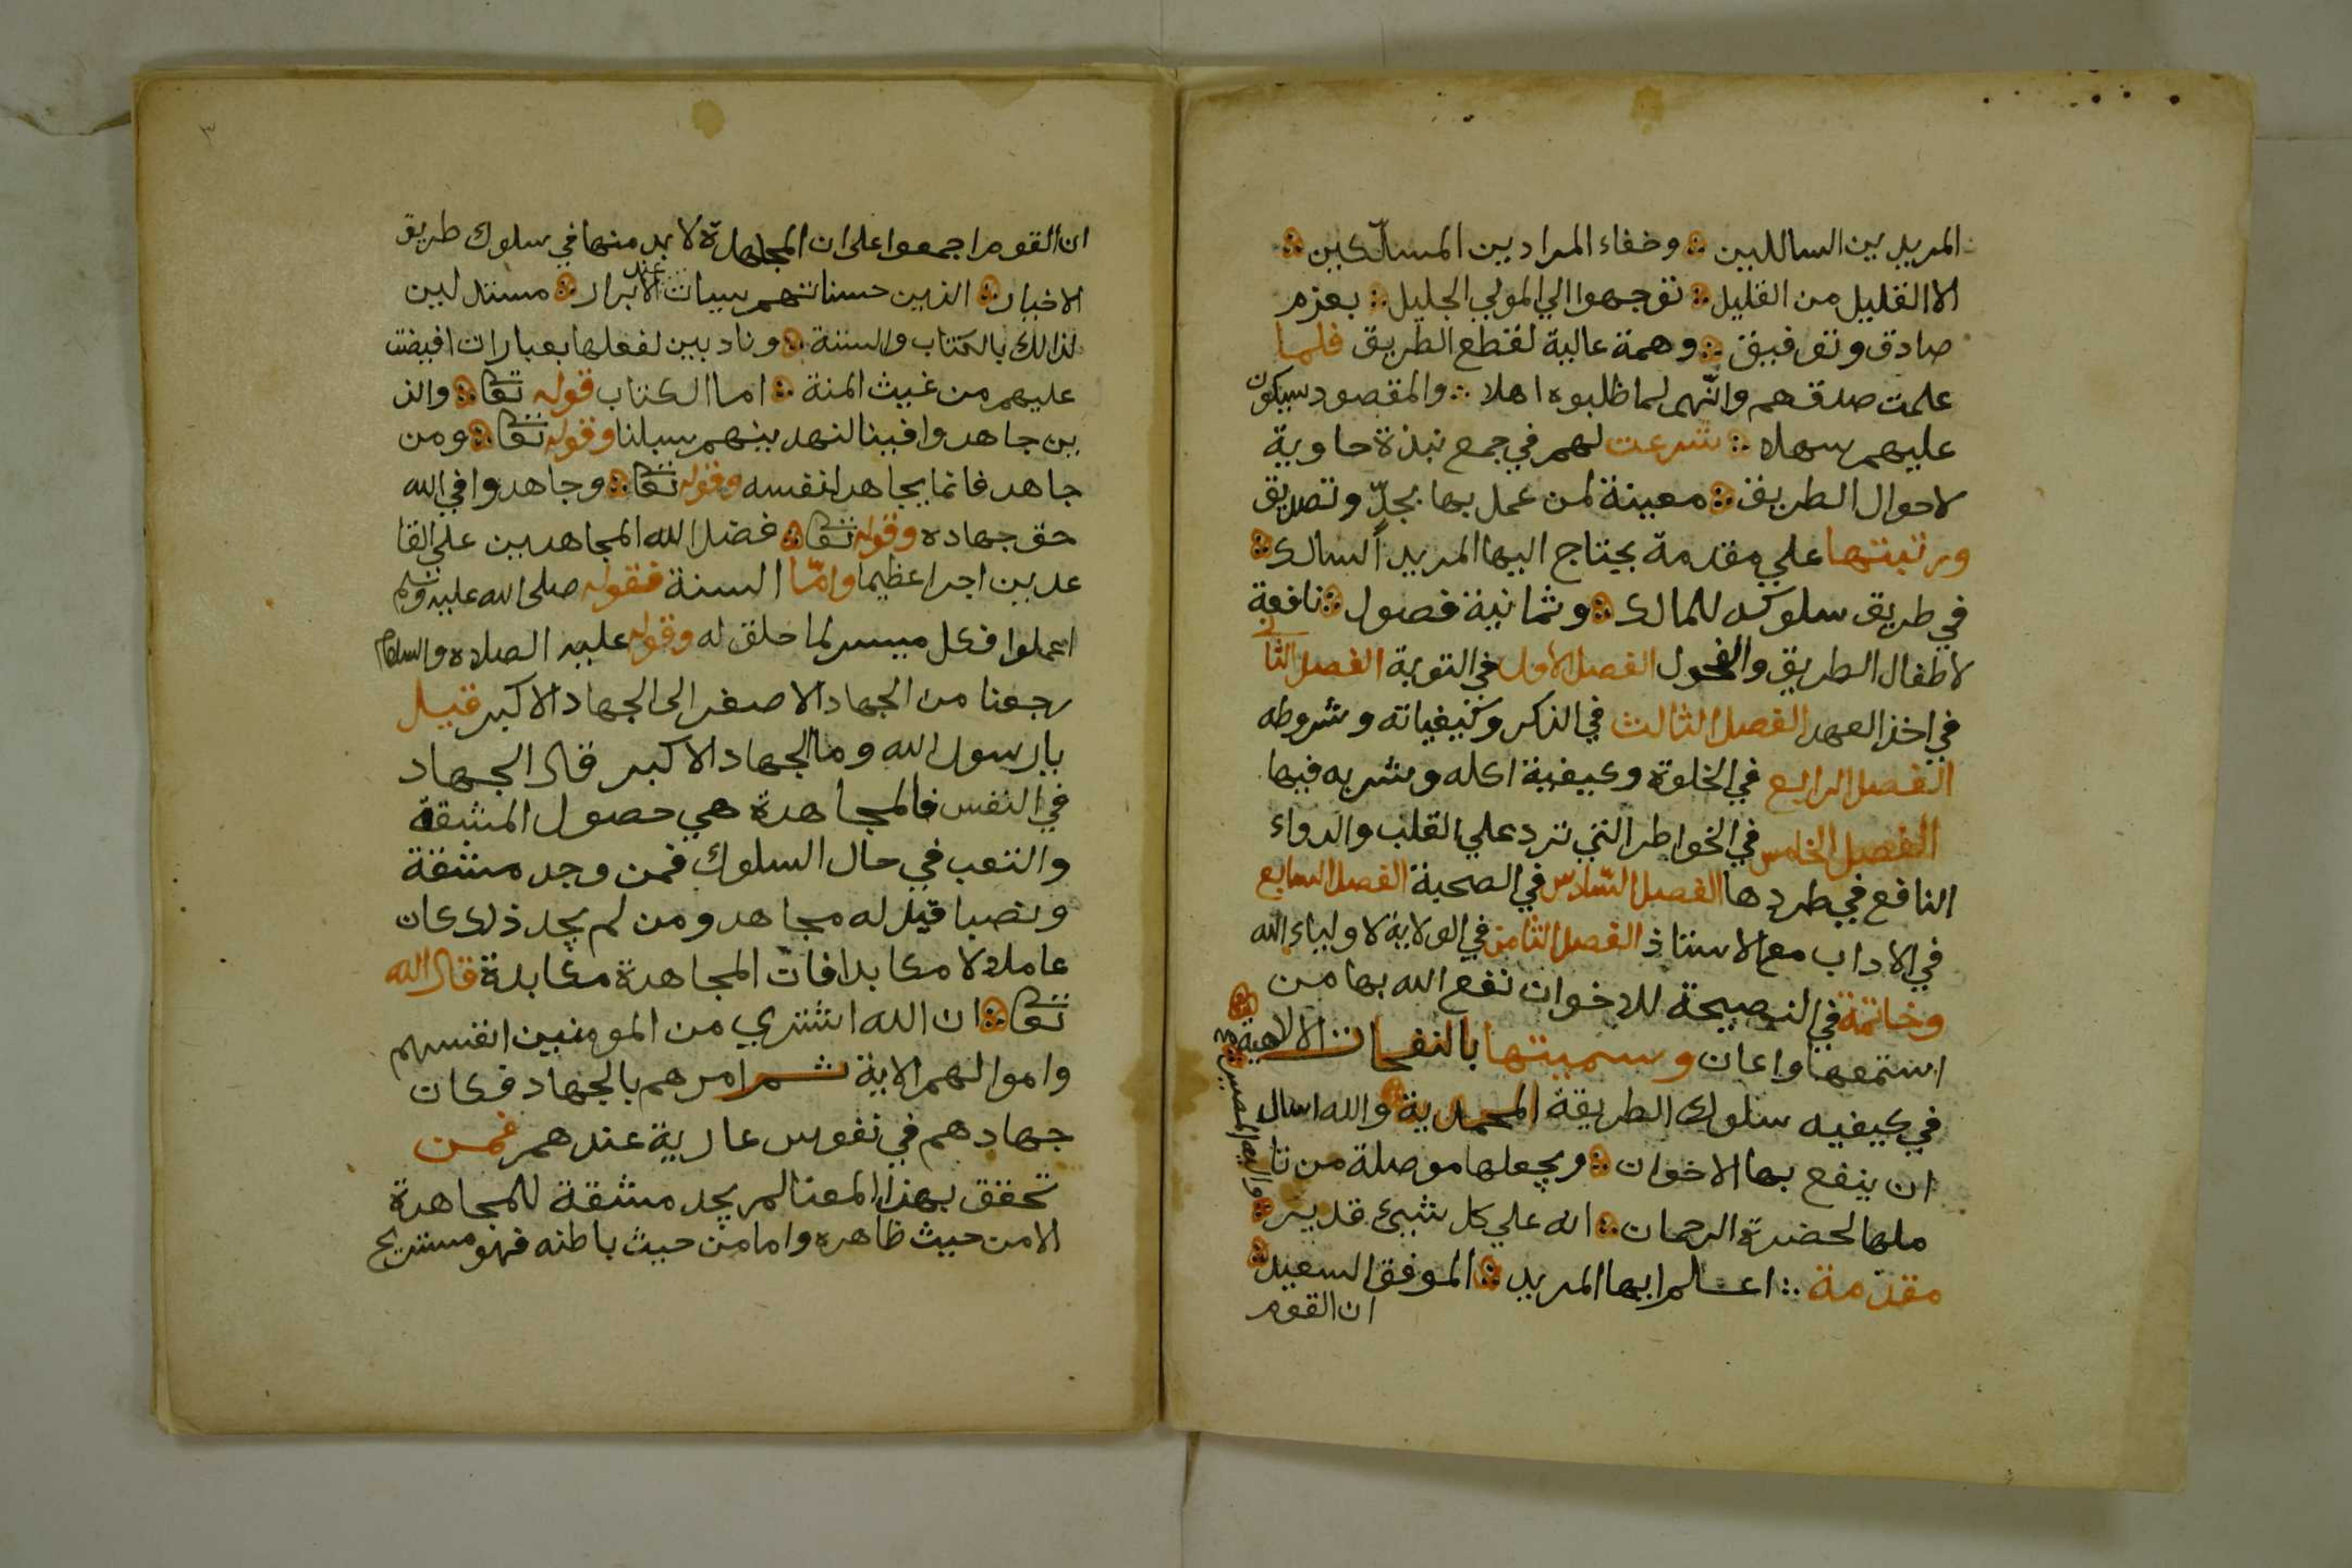 المريدين السالكين ∴ وخفاء المرادين المسلّكين ∴
الا القليل من القليل ∴ توجهوا الي المولي الجليل ∴ بعزم
صادق وتوفيق ∴ وهمة عالية لقطع الطريق فلما
علمت صدقهم وانّهم لما طلبوه اهلا ∴ والمقصود سيكون
عليهم سهلا ∴ شرعت لهم في جمع نبذة حاوية
لاحوال الطريق ∴ معينة لمن عمل بها بجدّ وتصديق
ورتبتها علي مقدمة يحتاج اليها المريد السالك ∴
في طريق سلوكه للمالك ∴ وثمانية فصول ∴ نافعة
لاطفال الطريق والفحول الفصل الاول في التوبة الفصل الثاني
في اخذ العهد الفصل الثالث في الذكر وكيفياته وشروطه
الفصل الرابع في الخلوة وكيفية اكله وشربه فيها
الفصل الخامس في الخواطر التي ترد علي القلب والدواء
النافع في طردها الفصل السّادس في الصحبة الفصل السابع
في الاداب مع الاستاذ الفصل الثامن في الولاية لاولياء الله
وخاتمة في النصيحة للاخوان نفع الله بها من
استمعها واعان وسميتها بالنفحات الالاهية
في كيفيه سلوك الطريقة المحمدية والله اسال
ان ينفع بها الاخوان ∴ ويجعلها موصلة من تا
ملها لحضرة الرحمان ∴ انه علي كل شيئ قدير ∴
واليه المصير
مقدّمة ∴ اعلم ايها المريد ∴ الموفق السعيد ∴
ان القوم
٣
ان القوم اجمعوا على ان المجاهدة لا بد منها في سلوك طريق
الاخيار ∴ الذين حسناتهم سيات عند الابرار ∴ مستدلين
لذالك بالكتاب والسنة ∴ ونادبين لفعلها بعبارات افيضت
عليهم من غيث المنة ∴ اما الكتاب قوله تعا ∴ والذ
ين جاهدوا فينا لنهدينهم سبلنا وقوله تعا ∴ ومن
جاهد فانما يجاهد لنفسه وقوله تعا ∴ وجاهدوا في الله
حق جهاده وقوله تعا ∴ فضل الله المجاهدين علي القا
عدين اجرا عظيما وامّا السنة فقوله صلى الله عليه وسلم
اعملوا فكل ميسر لما خلق له وقوله عليه الصلاه والسلام
رجعنا من الجهاد الاصغر الى الجهاد الاكبر قيل
يارسول الله وما الجهاد الاكبر قال الجهاد
في النفس فالمجاهدة هي حصول المشقة
والتعب في حال السلوك فمن وجد مشقة
ونصبا قيل له مجاهد ومن لم يجد ذلك كان
عاملا لا مكابدا فان المجاهدة مكابدة قال الله
تعا ∴ ان الله اشتري من المومنين انفسهم
واموالهم الاية ثم امرهم بالجهاد فكان
جهادهم في نفوس عارية عندهم فمن
تحقق بهذا المعنا لم يجد مشقة للمجاهدة
الا من حيث ظاهره واما من حيث باطنه فهو مستريح